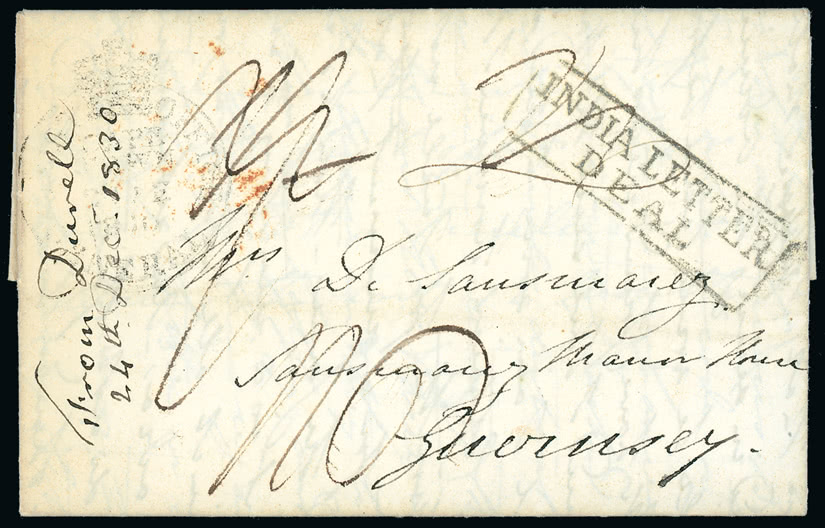 From Durell
24th Decr. 1830
INDIA LETTER
DEAL
Mrs De Sausmarez
Sausmarez Manor House
Guernsey.